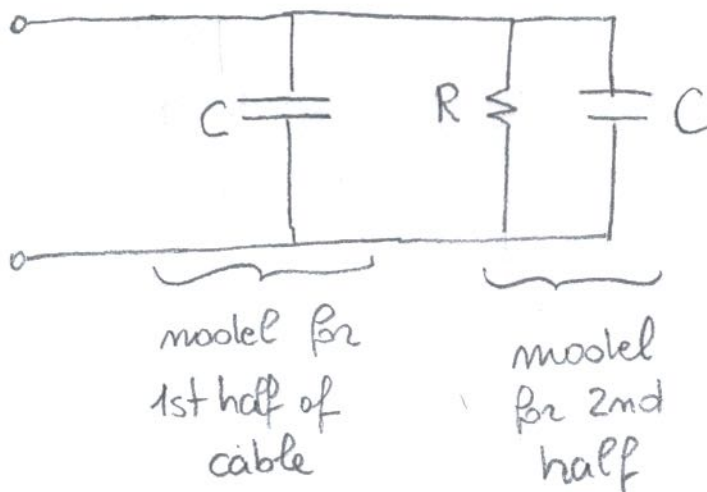 C
R
C
model for
1st half of
cable
model
for 2nd
half